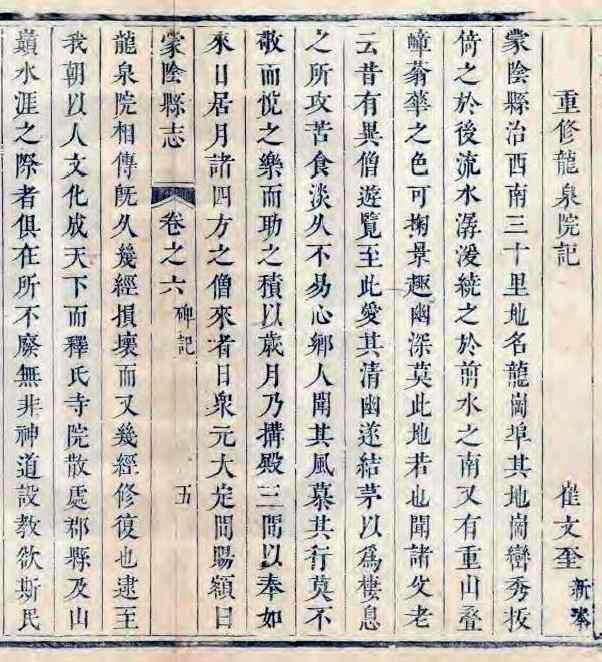 重修龍泉院記 崔文奎 新泰
蒙陰縣治西南三十里地名龍崗埠其地崗巒秀拔
倚之於後流水潺湲繞之於前水之南又有重山叠
嶂蓊華之色可掬景趣幽深莫此地若也聞諸父老
云昔有異僧遊覽至此愛其清幽遂結茅以爲棲息
之所攻苦食淡久不易心鄉人聞其風慕其行莫不
敬而悅之樂而助之積以歲月乃搆殿三間以奉如
來日居月諸四方之僧來者日衆元大定間賜額曰
蒙陰縣志 卷之六 碑記 五
龍泉院相傳旣久幾經損壞而又幾經修復也逮至
我朝以人文化成天下而釋氏寺院散處郡縣及山
巔水涯之際者俱在所不廢無非神道設教欲斯民